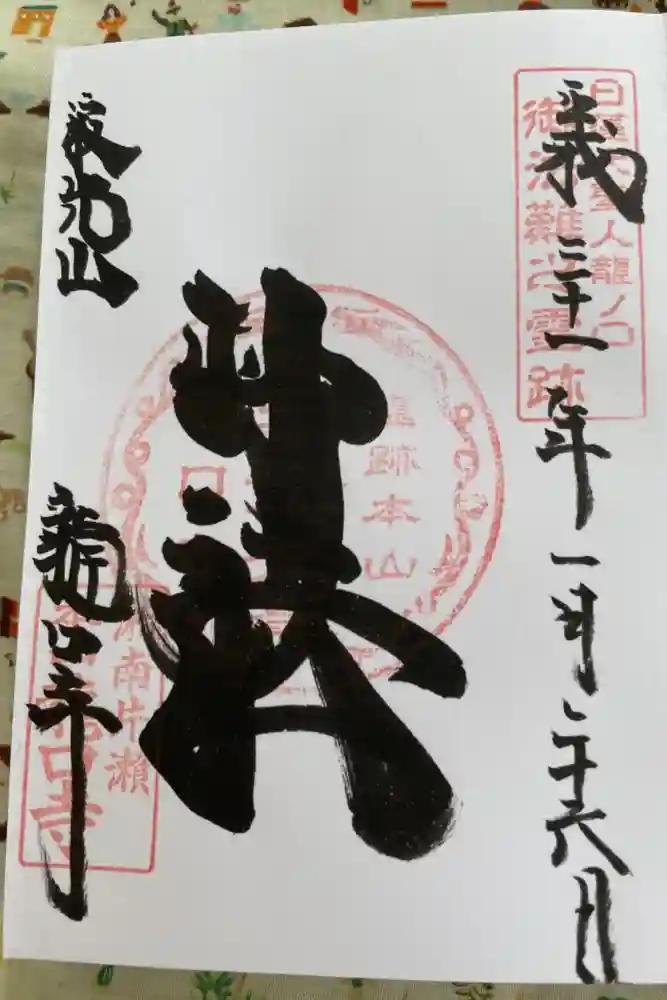 日蓮大聖人龍ノ口
御法難之霊跡
平成三十一年一月二十六日
霊跡本山
妙法
寂光山
龍口寺
湘南片瀬
龍口寺